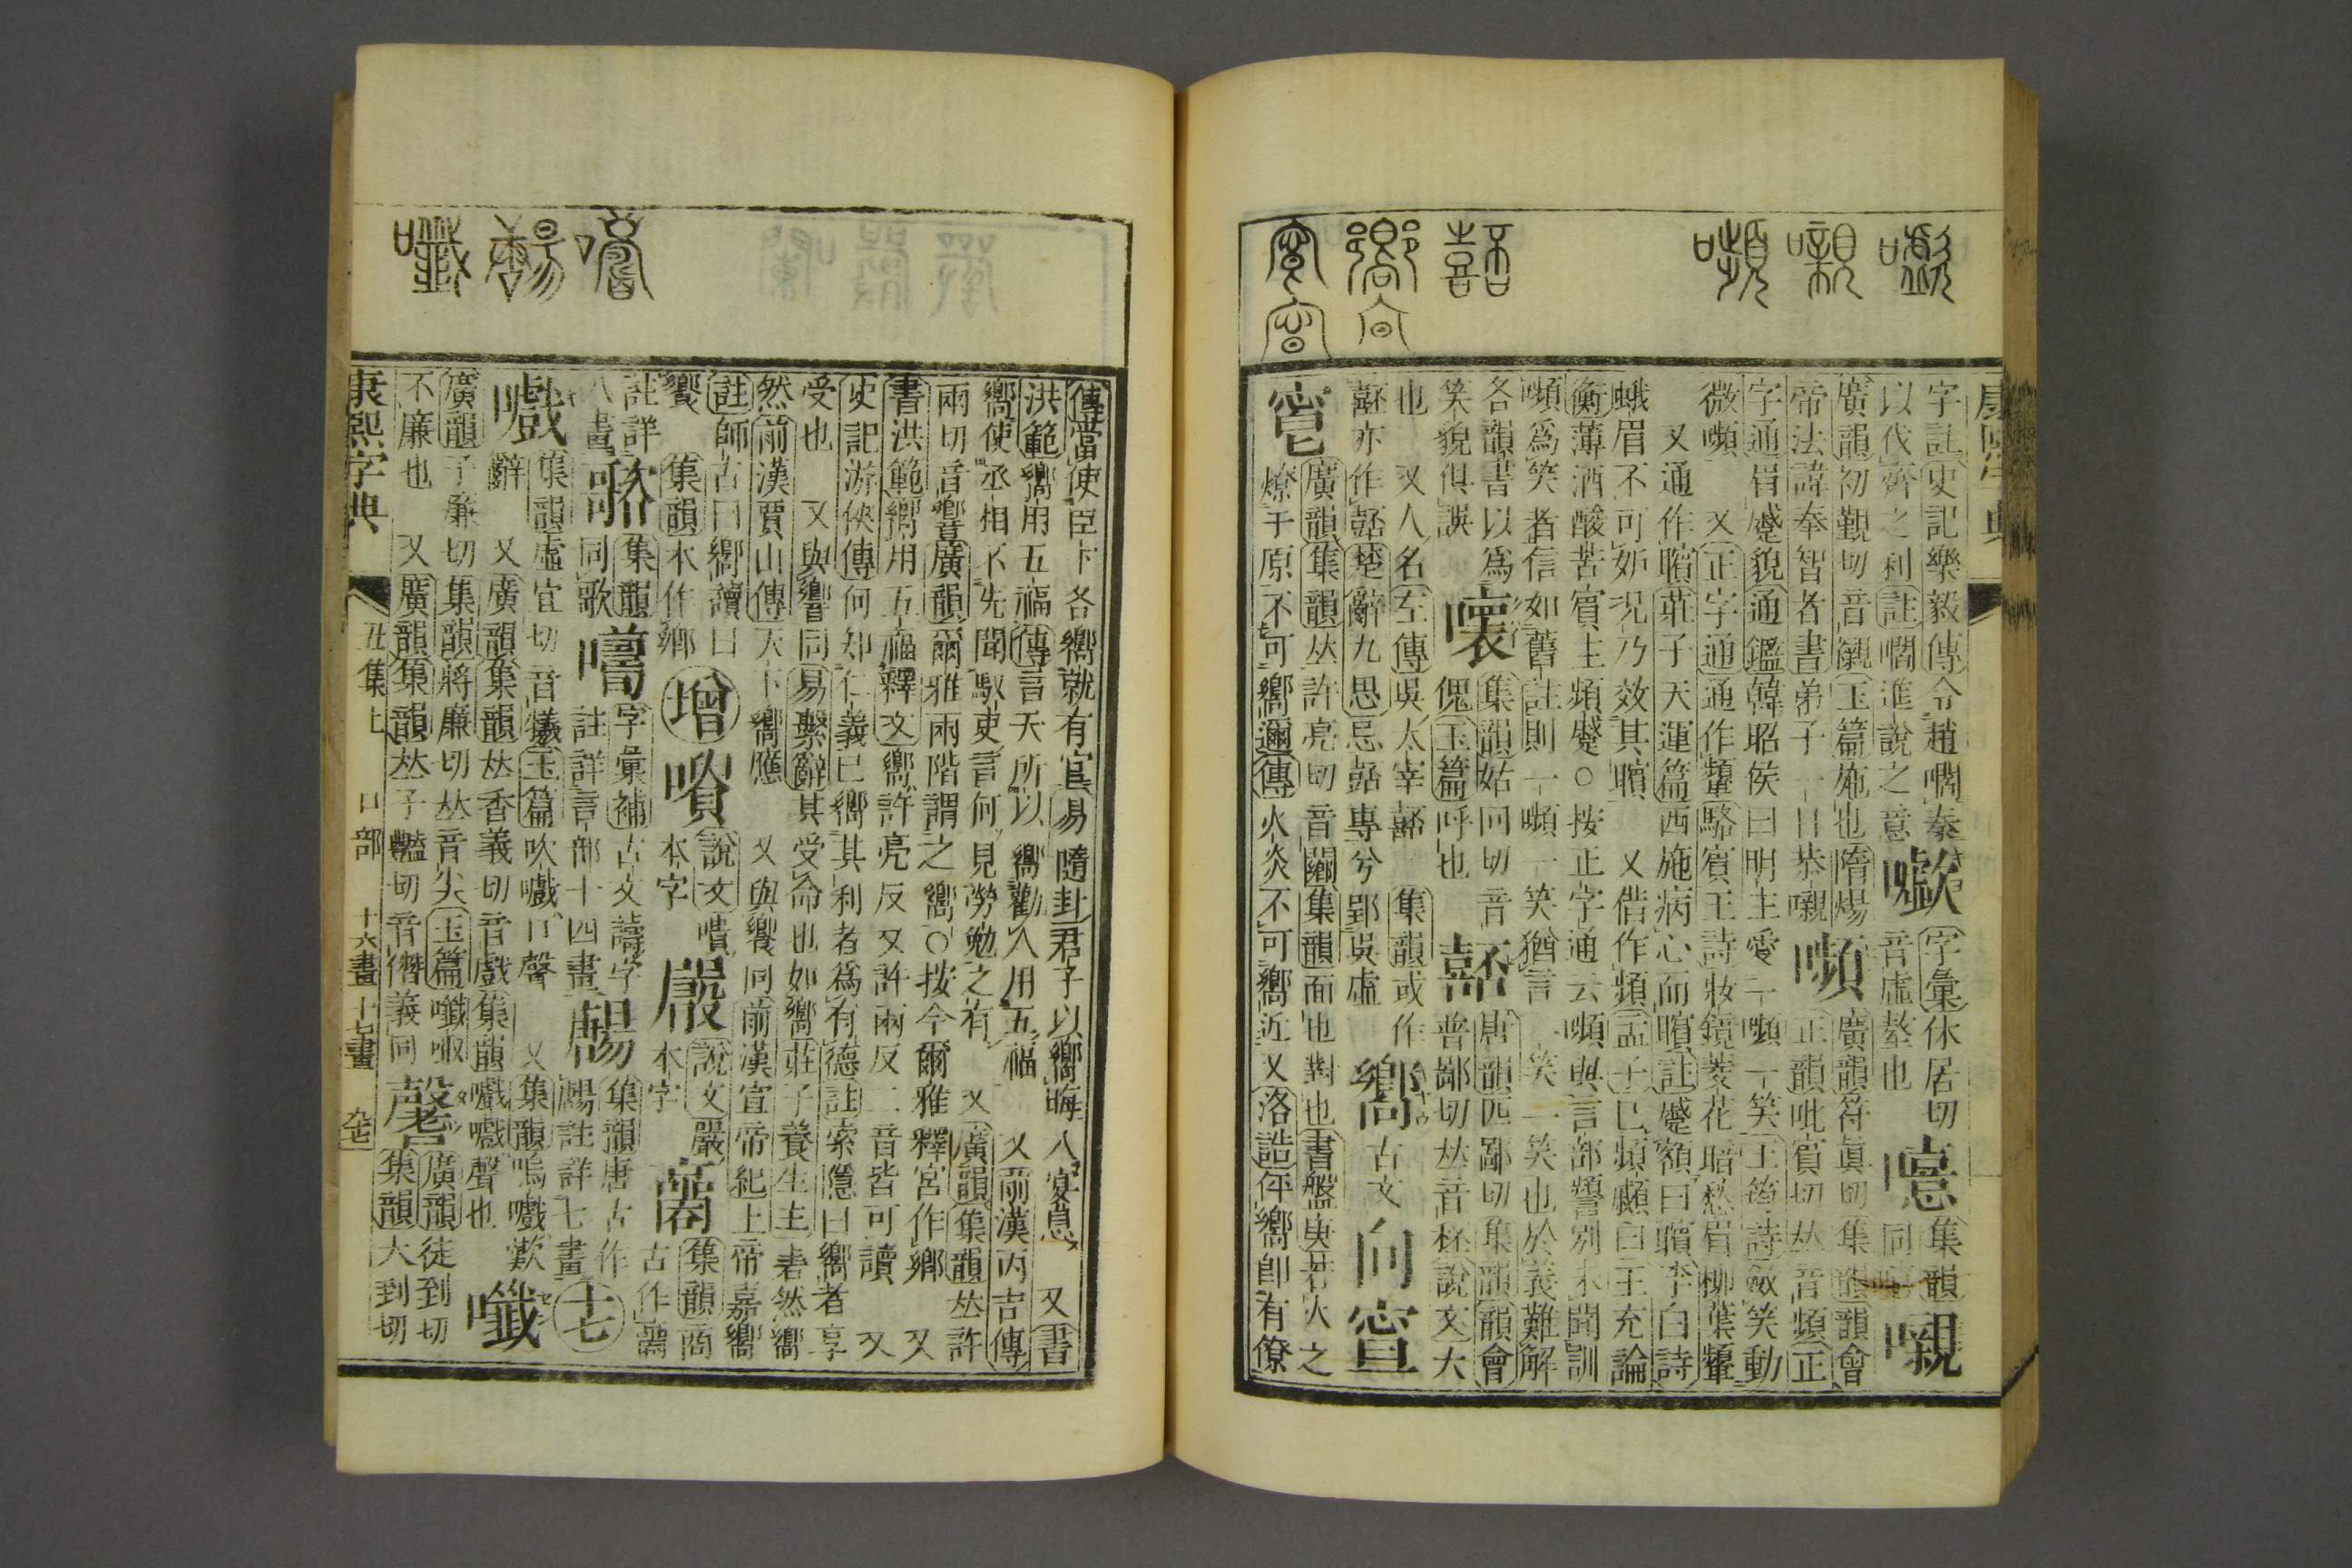 康熙字典
字註史記樂毅傳令趙嚪秦字彙休居切集韻
以伐齊之利註嚪進說之意音虛嫠也同嚫
廣韻初覲切音櫬玉篇施也隋煬廣韻符眞切集韻韻會
帝法諱奉智者書弟子一日恭嚫嚬正韻毗賓切𠀤音頻正
字通眉蹙貌通鑑韓昭侯曰明主愛一嚬一笑王筠詩斂笑動
微嚬 又正字通通作顰駱賓王詩妝鏡菱花暗愁眉柳葉顰
又通作矉莊子天運篇西施病心而矉註蹙額曰矉李白詩
蛾眉不可妬況乃效其矉 又借作頻孟子已頻顣曰王充論
衡薄酒酸苦賓主頻蹙○按正字通云嚬與言部別未聞訓
嚬爲笑者信如舊註則一嚬一笑猶言一笑一笑也於義難解
各韻書以爲㘹集韻姑回切音嚭唐韻匹鄙切集韻韻會
笑貌俱誤 傀玉篇呼也 普鄙切𠀤音秠說文大
也 又人名左傳吳太宰嚭 集韻或作嚮古文向
亦作嚭楚辭九思忌嚭專兮郢吳虛
廣韻集韻𠀤許亮切音闀集韻面也對也書盤庚若火之
燎于原不可嚮邇傳火炎不可嚮近又洛誥伻嚮卽有僚
傳當使臣下各嚮就有官易隨卦君子以嚮晦入宴息 又書
洪範嚮用五福傳言天所以嚮勸人用五福 又前漢丙吉傳
嚮使丞相不先聞馭吏言何見勞勉之有 又廣韻集韻𠀤許
兩切音響廣韻爾雅兩階謂之嚮○按今爾雅釋宮作鄉 又
書洪範嚮用五福釋文嚮許亮反又許兩反二音皆可讀 又
史記游俠傳何知仁義已嚮其利者爲有德註索隱曰嚮者享
受也 又與響同易繫辭其受命也如嚮莊子養生主砉然嚮
然前漢賈山傳天下嚮應 又與饗同前漢宣帝紀上帝嘉嚮
註師古曰嚮讀曰增說文說文嚴集韻
饗 集韻本作鄉本字本字古作
註詳集韻字彙補古文譸字集韻唐古作十七
八畫同歌註詳言部十四畫註詳七畫
嚱集韻虛宜切音犧玉篇吹嚱口聲 又集韻嗚嚱歎
辭 又廣韻集韻𠀤香義切音戲集韻嚱嚱聲也
廣韻子廉切集韻將廉切𠀤音尖玉篇廣韻徒到切
不廉也 又廣韻集韻𠀤子豔切音僭義同集韻大到切
康熙字典 丑集上 口部 十六畫 十七畫